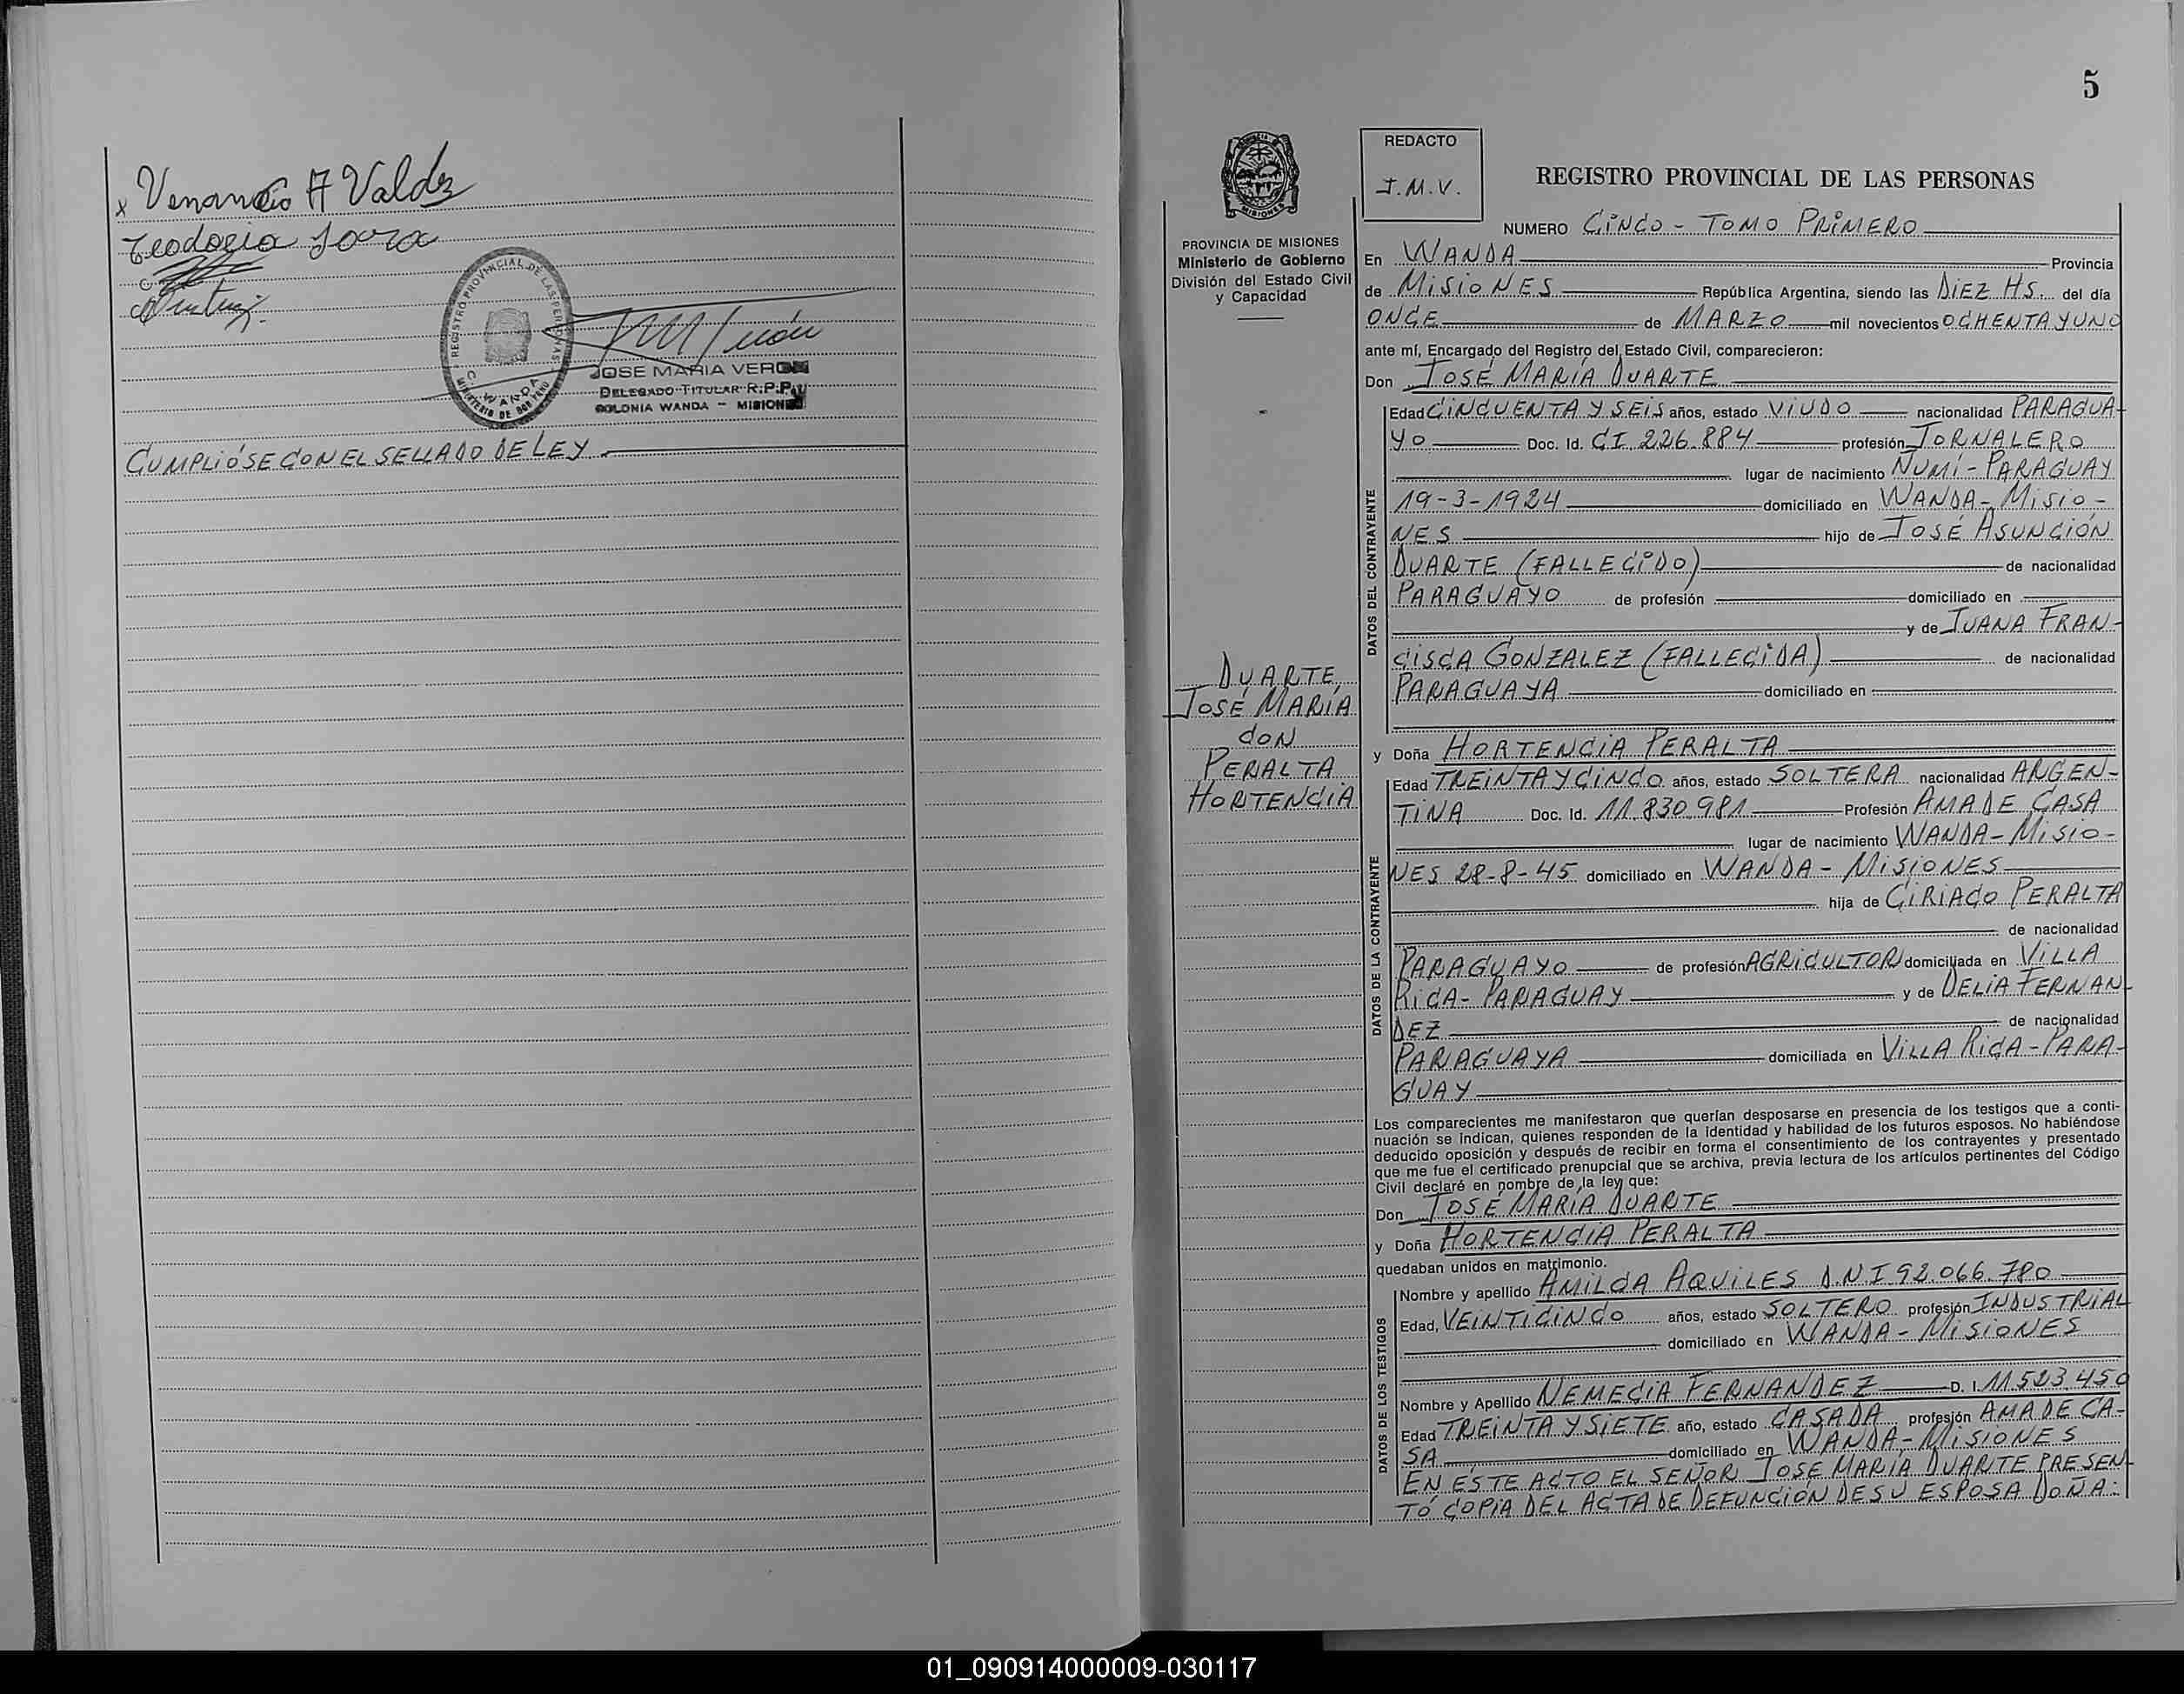 x Venancio A Valdez
Teodocia Jara
REGISTRO PROVINCIAL DE LAS PERSONAS
WANDA
MINISTERIO DE GOBIERNO
JOSE MARIA VERON
DELEGADO TITULAR R.P.P.
COLONIA WANDA - MISIONES
CUMPLIÓSE CON EL SELLADO DE LEY.
5
PROVINCIA DE MISIONES
Ministerio de Gobierno
División del Estado Civil
y Capacidad
DUARTE,
JOSÉ MARÍA
CON
PERALTA
HORTENCIA
REDACTO
J.M.V.
REGISTRO PROVINCIAL DE LAS PERSONAS
NUMERO CINCO - TOMO PRIMERO
En WANDA Provincia
de MISIONES República Argentina, siendo las DIEZ HS. del día
ONCE de MARZO mil novecientos OCHENTA Y UNO
ante mí, Encargado del Registro del Estado Civil, comparecieron:
Don JOSÉ MARÍA DUARTE
DATOS DEL CONTRAYENTE
Edad CINCUENTA Y SEIS años, estado VIUDO nacionalidad PARAGUA-
YO Doc. Id. CI. 226.884 profesión JORNALERO
lugar de nacimiento ÑUMÍ - PARAGUAY
19-3-1924 domiciliado en WANDA - MISIO-
NES hijo de JOSÉ ASUNCIÓN
DUARTE (FALLECIDO) de nacionalidad
PARAGUAYO de profesión domiciliado en
y de JUANA FRAN-
CISCA GONZALEZ (FALLECIDA) de nacionalidad
PARAGUAYA domiciliado en
y Doña HORTENCIA PERALTA
DATOS DE LA CONTRAYENTE
Edad TREINTA Y CINCO años, estado SOLTERA nacionalidad ARGEN-
TINA Doc. Id. 11.830.981 Profesión AMA DE CASA
lugar de nacimiento WANDA - MISIO-
NES 28-8-45 domiciliado en WANDA - MISIONES
hija de CIRIACO PERALTA
de nacionalidad
PARAGUAYO de profesión AGRICULTOR domiciliada en VILLA
RICA - PARAGUAY y de DELIA FERNAN-
DEZ de nacionalidad
PARAGUAYA domiciliada en VILLA RICA - PARA-
GUAY
Los comparecientes me manifestaron que querían desposarse en presencia de los testigos que a conti-
nuación se indican, quienes responden de la identidad y habilidad de los futuros esposos. No habiéndose
deducido oposición y después de recibir en forma el consentimiento de los contrayentes y presentado
que me fue el certificado prenupcial que se archiva, previa lectura de los artículos pertinentes del Código
Civil declaré en nombre de la ley que:
Don JOSÉ MARÍA DUARTE
y Doña HORTENCIA PERALTA
quedaban unidos en matrimonio.
DATOS DE LOS TESTIGOS
Nombre y apellido AMILCA AQUILES D.N.I 92.066.780
Edad, VEINTICINCO años, estado SOLTERO profesión INDUSTRIAL
domiciliado en WANDA - MISIONES
Nombre y Apellido NEMECIA FERNANDEZ D. I. 11.523.450
Edad TREINTA Y SIETE año, estado CASADA profesión AMA DE CA-
SA domiciliado en WANDA - MISIONES
EN ESTE ACTO EL SEÑOR JOSE MARÍA DUARTE PRESEN-
TÓ COPIA DEL ACTA DE DEFUNCIÓN DE SU ESPOSA DOÑA:
01_090914000009-030117